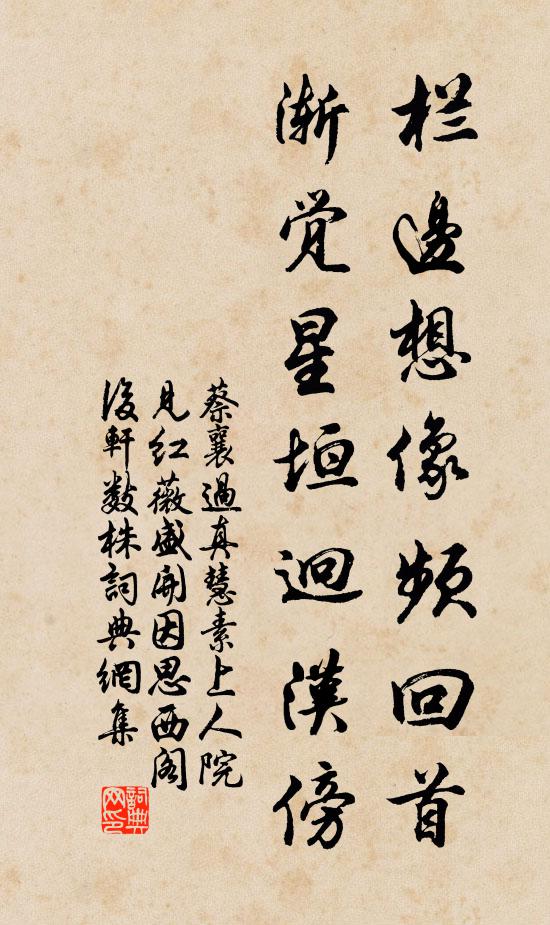 栏邊想像頻回首
漸觉星垣迥漢傍
蔡襄過真慧素上人院
見红薇盛開因思西阁
後軒數株詞典網集
詞典网印